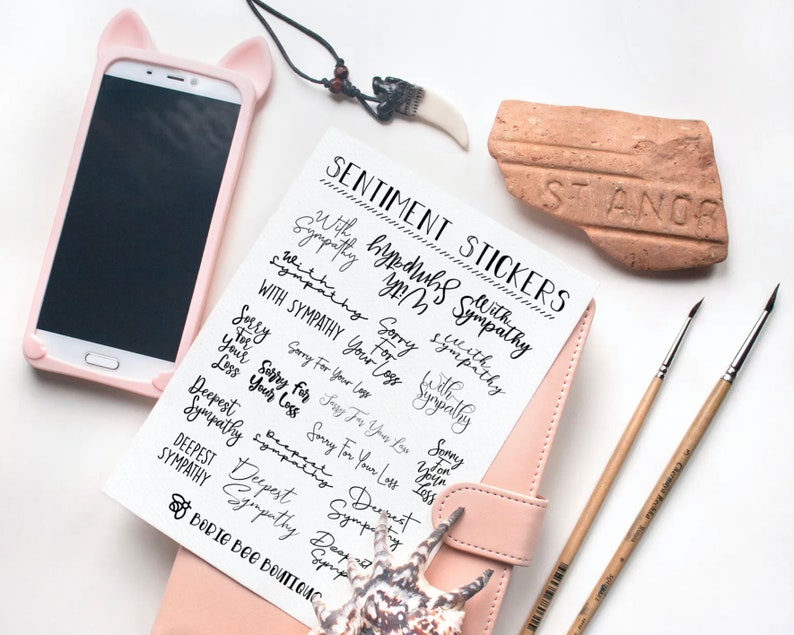 SENTIMENT STICKERS
With
Sympathy
With
Sympathy
With
Sympathy
With
Sympathy
WITH SYMPATHY
Sorry
For
Your Loss
With
Sympathy
Sorry
For
Your
Loss
Sorry For Your Loss
With
Sympathy
Sorry For
Your Loss
Sorry For Your Loss
Deepest
Sympathy
Deepest
Sympathy
Sorry For Your Loss
Sorry
For
Your
Loss
DEEPEST
SYMPATHY
Deepest
Sympathy
Deepest
Sympathy
Deepest
Sympathy
BORIE BEE BOUTIQUE
ST ANDR